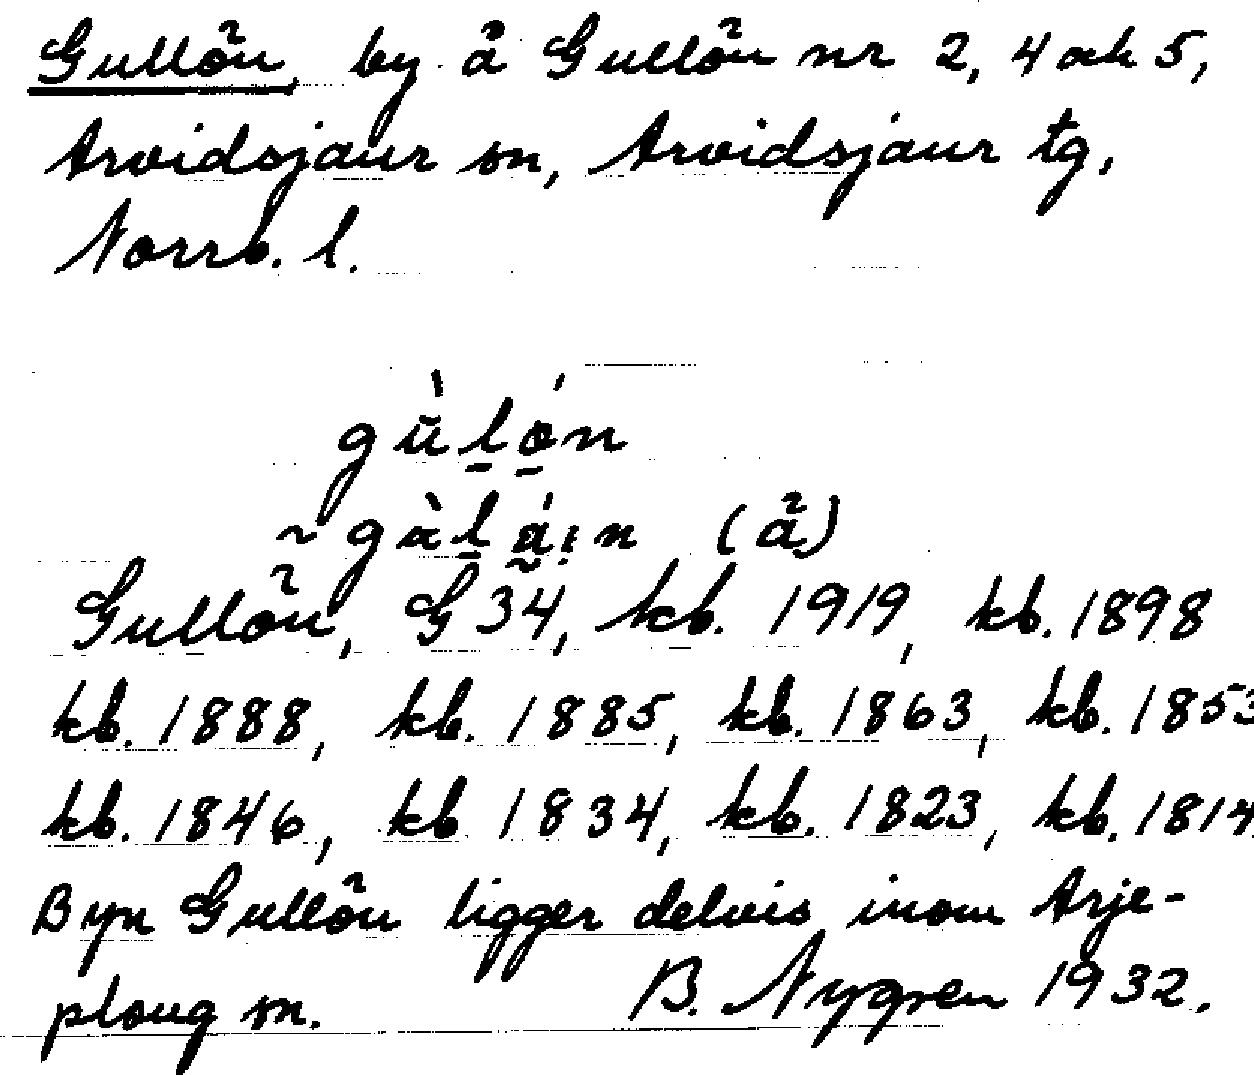 Gullön, by å Gullön nr 2, 4 och 5,
Arvidsjaur sn, Arvidsjaur tg,
Norrb. l.
gùl̠ó̠n
~ gàl̠á̰:n (å)
Gullön, G 34, kb. 1919, kb. 1898
kb. 1888, kb. 1885, kb. 1863, kb. 1853
kb. 1846, kb 1834, kb. 1823, kb. 1814
Byn Gullön ligger delvis inom Arje-
ploug sn. B. Nygren 1932.